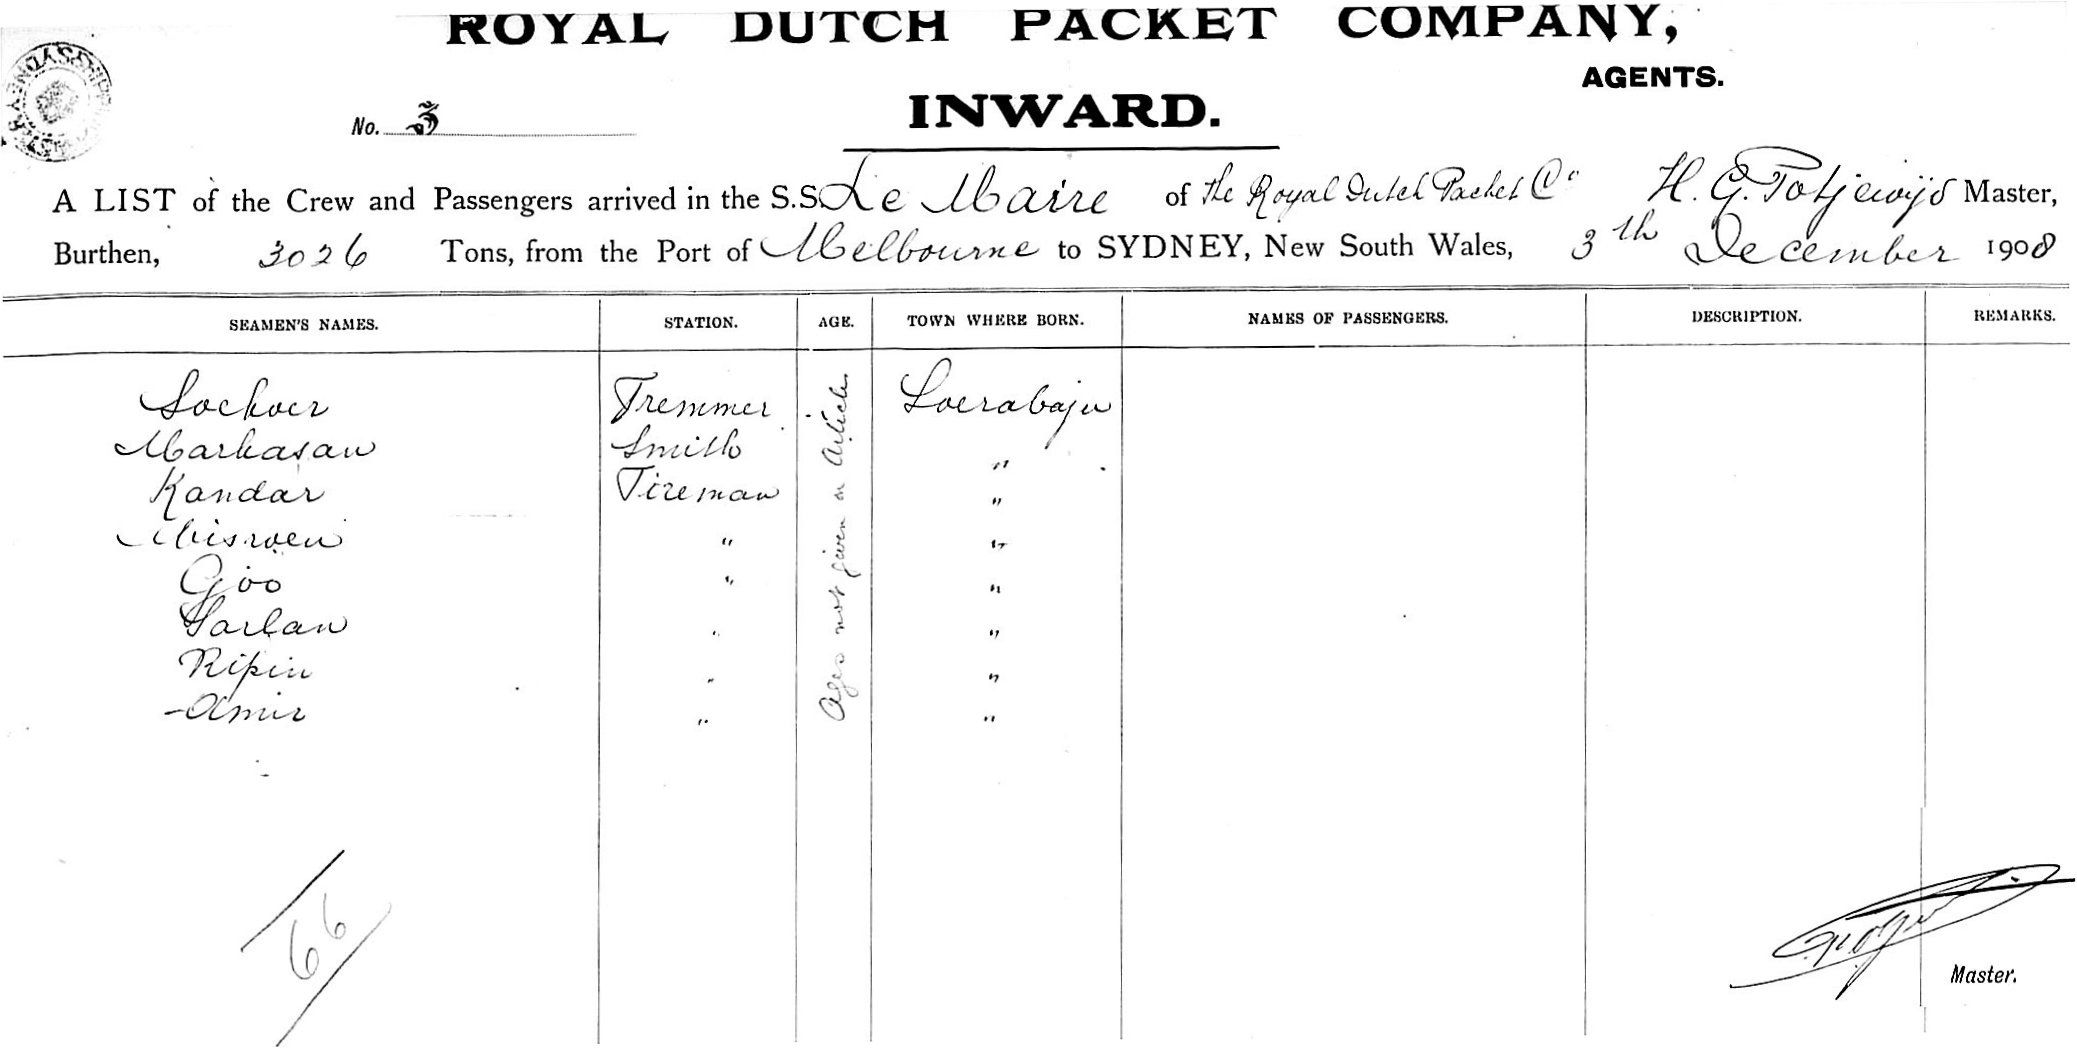 ROYAL DUTCH PACKET COMPANY,
AGENTS.
INWARD.
No. 3
A LIST of the Crew and Passengers arrived in the S.S. Le Maire of the Royal Dutch Packet Co H. G. Potjewijd Master,
Burthen, 3026 Tons, from the Port of Melbourne to SYDNEY, New South Wales, 3th December 1908
SEAMEN'S NAMES. STATION. AGE. TOWN WHERE BORN. NAMES OF PASSENGERS. DESCRIPTION. REMARKS.
Ages not given on Article.
Soekoer Tremmer Soerabaja
Markasan Smith "
Kandar Fireman "
Miswen " "
Gioo " "
Sarlan " "
Ripin " "
Amir " "
66
Master.